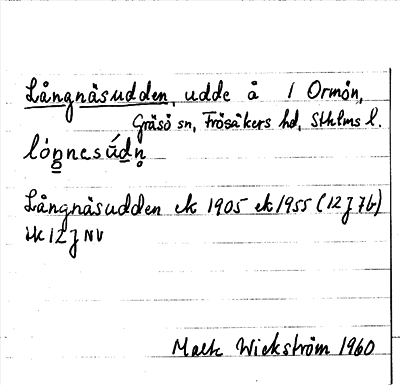 Långnäsudden, udde å 1 Ormön,
Gräsö sn, Frösåkers hd, Sthlms l.
Långnäsudden ek 1905 ek 1955 (12J7b)
tk 12J NV
Malte Wickström 1960